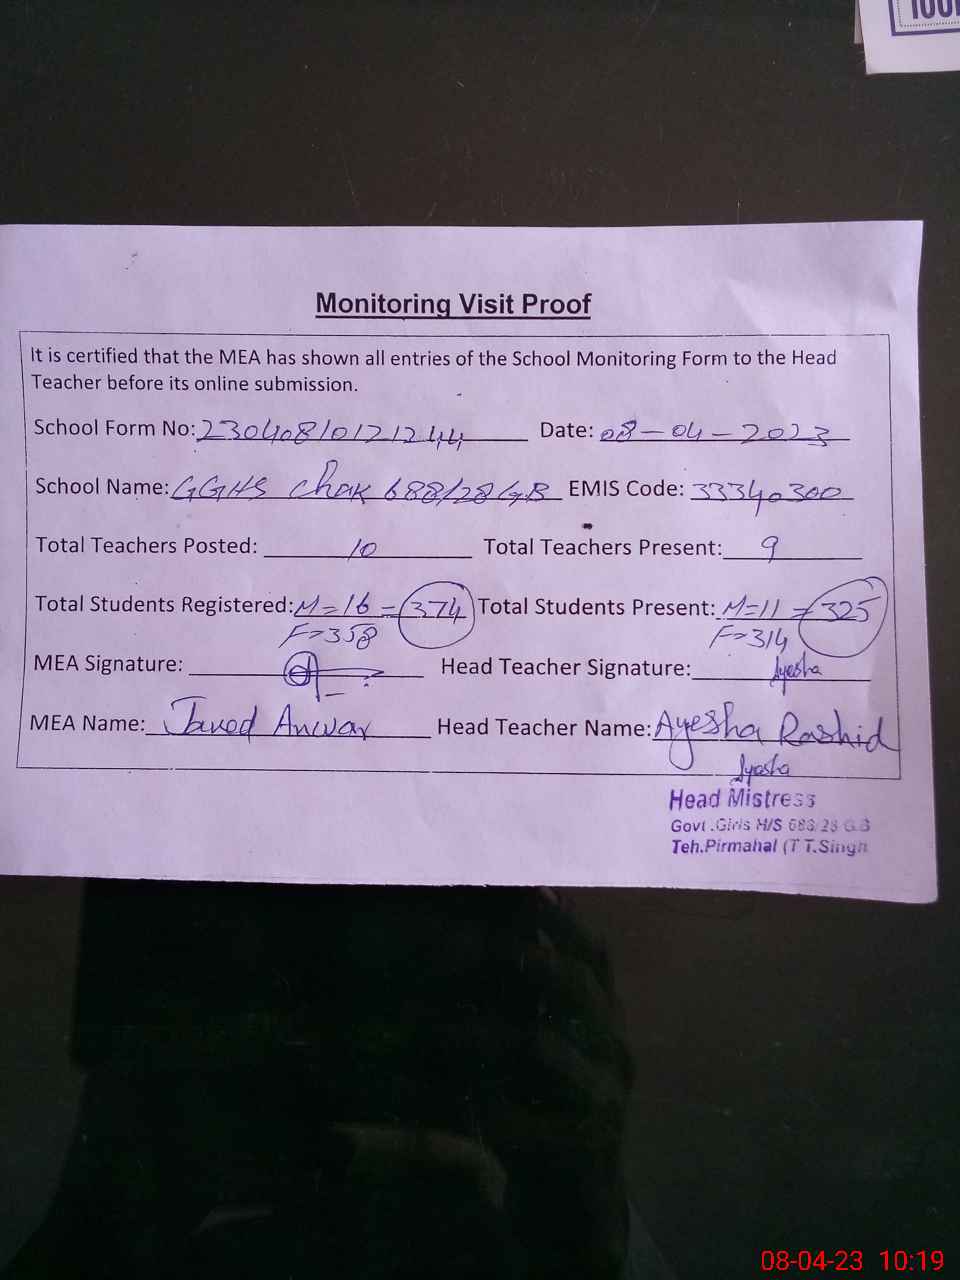 Monitoring Visit Proof
It is certified that the MEA has shown all entries of the School Monitoring Form to the Head
Teacher before its online submission.
School Form No: 23040810121244 Date: 08-04-2023
School Name: GGHS Chak 688/28 GB EMIS Code: 33340300
Total Teachers Posted: 10 Total Teachers Present: 9
Total Students Registered: M=16 = 374 Total Students Present: M=11 = 325
F=358 F=314
MEA Signature: Head Teacher Signature: Ayesha
MEA Name: Javed Anwar Head Teacher Name: Ayesha Rashid
Ayesha
Head Mistress
Govt .Girls H/S 688/28 G.B
Teh.Pirmahal (T.T.Singh
08-04-23 10:19